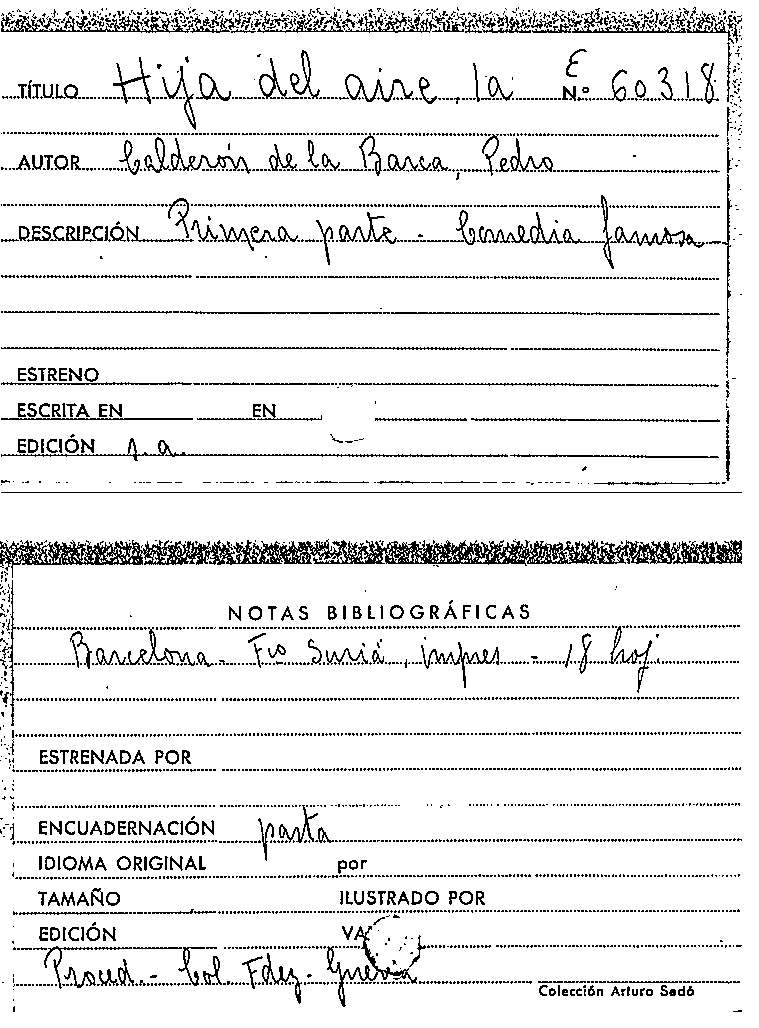 E
TÍTULO Hija del aire, la N.º 60318
AUTOR Calderón de la Barca, Pedro
DESCRIPCIÓN Primera parte - Comedia famosa
ESTRENO
ESCRITA EN EN
EDICIÓN s.a.
NOTAS BIBLIOGRÁFICAS
Barcelona - Fco Suriá, impres - 18 hoj.
ESTRENADA POR
ENCUADERNACIÓN pasta
IDIOMA ORIGINAL por
TAMAÑO ILUSTRADO POR
EDICIÓN VA
Proced. - Col. Fdez - Guerra
Colección Arturo Sedó